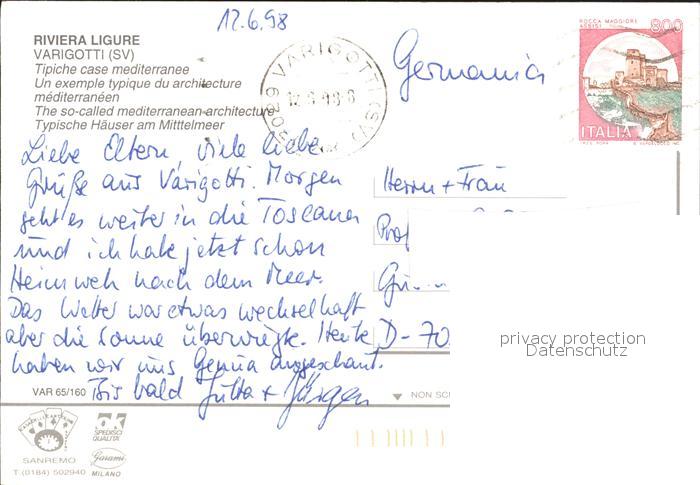 12.6.98
RIVIERA LIGURE
VARIGOTTI (SV)
Tipiche case mediterranee
Un exemple typique du architecture
méditerranéen
The so-called mediterranean architecture
Typische Häuser am Mitttelmeer
VARIGOTTI (SV)
Germania
ROCCA MAGGIORE
ASSISI
800
ITALIA
Liebe Eltern, viele liebe
Grüße aus Varigotti. Morgen
geht es weiter in die Toscana
und ich habe jetzt schon
Heimweh nach dem Meer.
Das Wetter war etwas wechselhaft
aber die Sonne überwiegte. Heute
haben wir uns Genua angeschaut.
Bis bald Jutta + Jürgen
Herrn + Frau
Prof
D-70
privacy protection
Datenschutz
VAR 65/160
NON SC
SPEDISCI
QUALITA'
SANREMO
T.(0184) 502940
Garami
MILANO